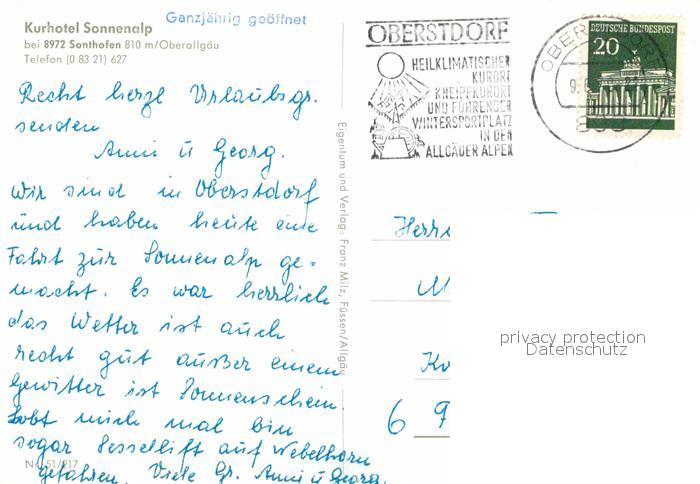 Kurhotel Sonnenalp
bei 8972 Sonthofen 810 m/Oberallgäu
Telefon (0 83 21) 627
Ganzjährig geöffnet
Recht herzl Urlaubsgr.
senden
Anni ü Georg.
Wir sind in Oberstdorf
und haben heute eine
Fahrt zur Sonnenalp ge=
macht. Es war herrlich
das Wetter ist auch
recht gut außer einem
Gewitter ist Sonnenschein
Lobt mich mal bin
sogar Sessellift auf Nebelhorn
gefahren. Viele Gr. Anni ü Georg.
Nr. 51/217
Eigentum und Verlag: Franz Milz, Füssen/Allgäu
OBERSTDORF
HEILKLIMATISCHER
KURORT
KNEIPPKURORT
UND FÜHRENDER
WINTERSPORTPLATZ
IN DEN
ALLGÄUER ALPEN
DEUTSCHE BUNDESPOST
20
Herrn
6
privacy protection
Datenschutz